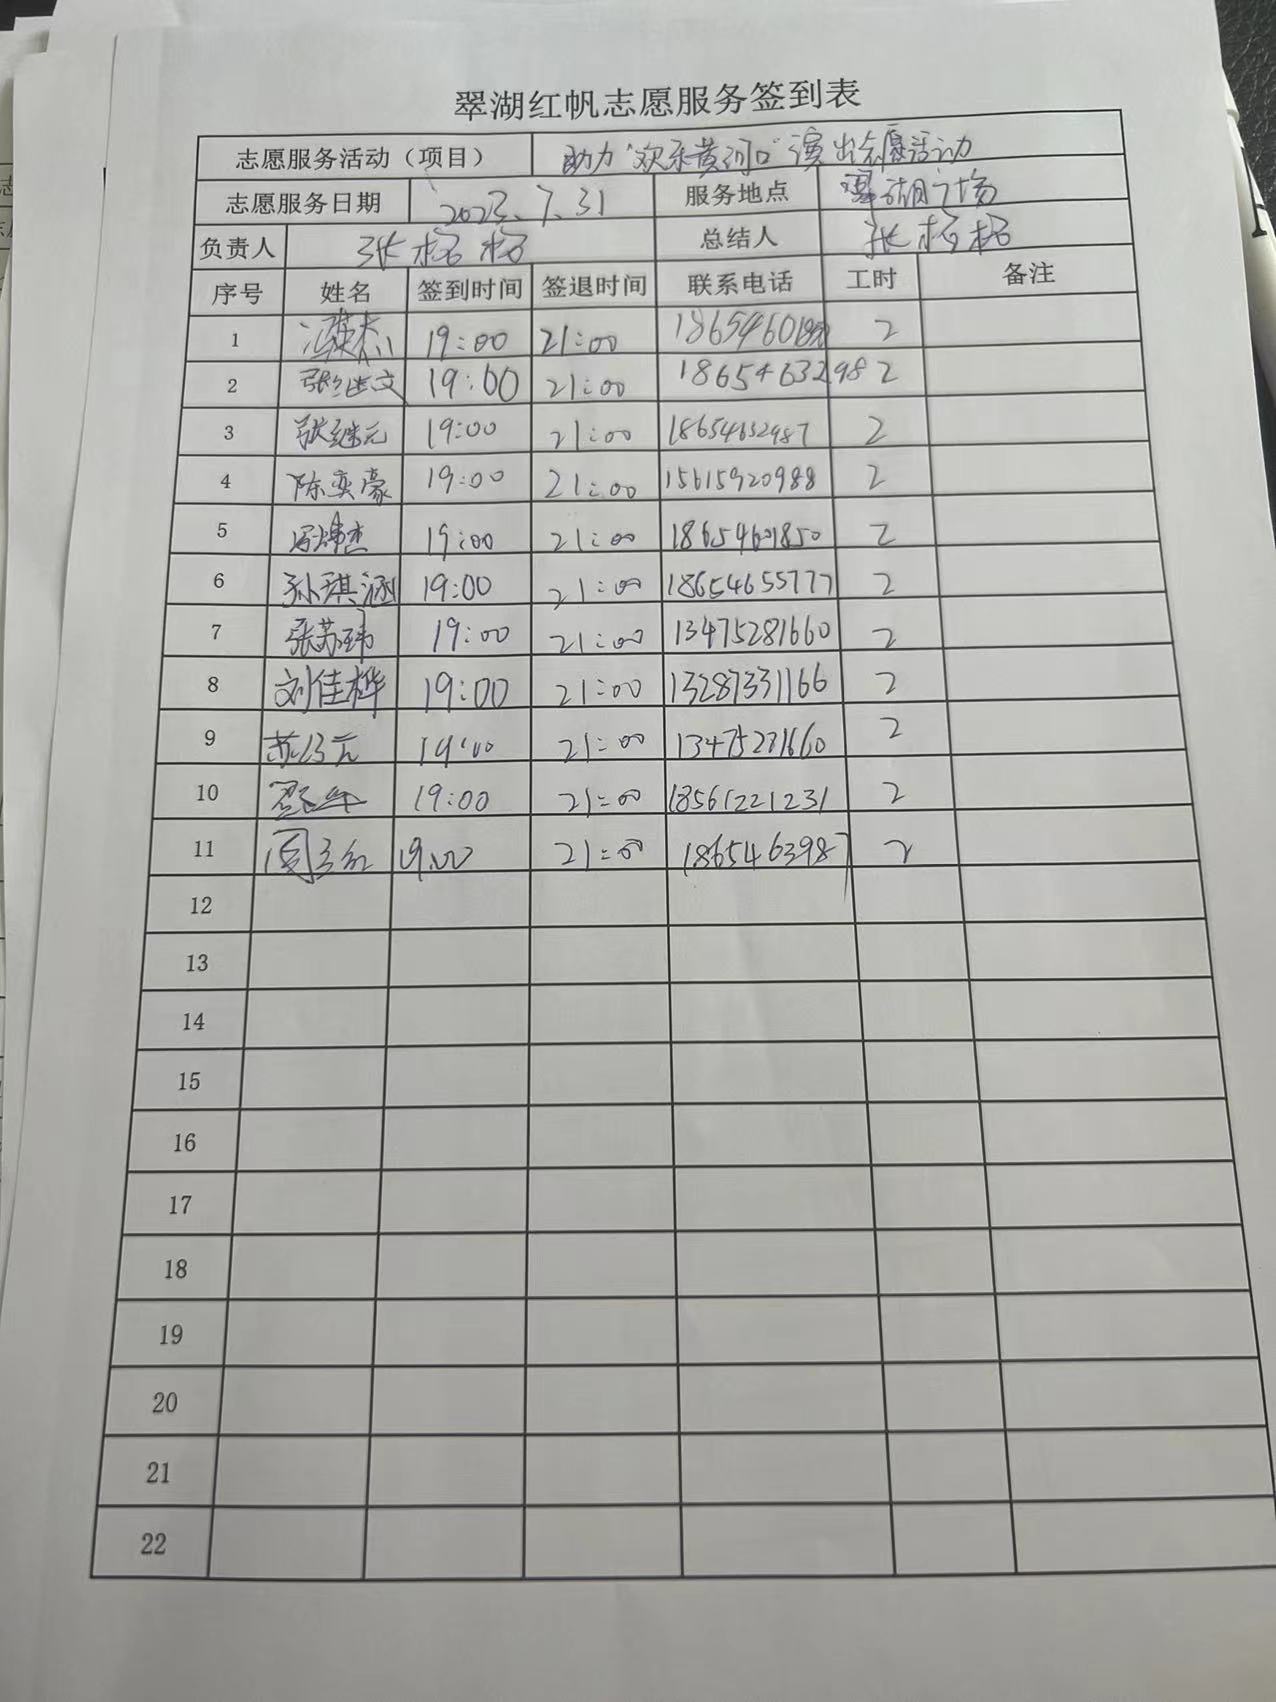 翠湖红帆志愿服务签到表
志愿服务活动（项目） 助力“欢乐黄河口”演出志愿活动
志愿服务日期 2023.7.31 服务地点 翠湖广场
负责人 张杨杨 总结人 张杨杨
序号 姓名 签到时间 签退时间 联系电话 工时 备注
1 19:00 21:00 2
2 张继文 19:00 21:00 18654632982 2
3 张继元 19:00 21:00 18654632987 2
4 陈奕豪 19:00 21:00 15615920988 2
5 19:00 21:00 18654601850 2
6 孙琪涵 19:00 21:00 18654655777 2
7 张苏玮 19:00 21:00 13475281660 2
8 刘佳桦 19:00 21:00 13287331166 2
9 19:00 21:00 13475281660 2
10 19:00 21:00 18561221231 2
11 19:00 21:00 1865463987 2
12
13
14
15
16
17
18
19
20
21
22